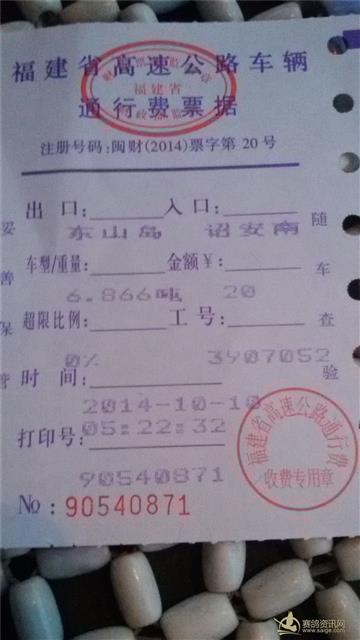 福建省高速公路车辆
通行费票据
福建省
注册号码:闽财(2014)票字第20号
出口: 入口:
东山岛 诏安南
车型/重量: 金额￥:
6.866吨 20
超限比例: 工号:
0% 3907052
时间:
2014-10-10
打印号: 05:22:32
90540871
No: 90540871
妥善保管
随车查验
福建省高速公路通行费
收费专用章
赛鸽资讯网
www.saige.com